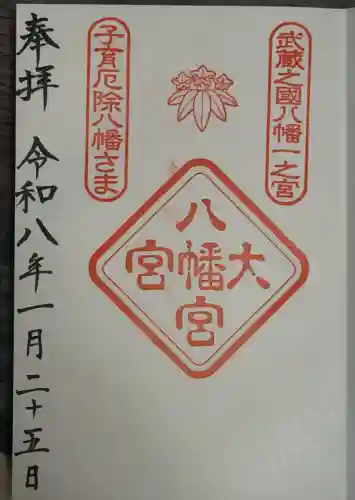 武蔵之國八幡一之宮
子育厄除八幡さま
八
大幡宮
宮
奉拝 令和八年一月二十五日